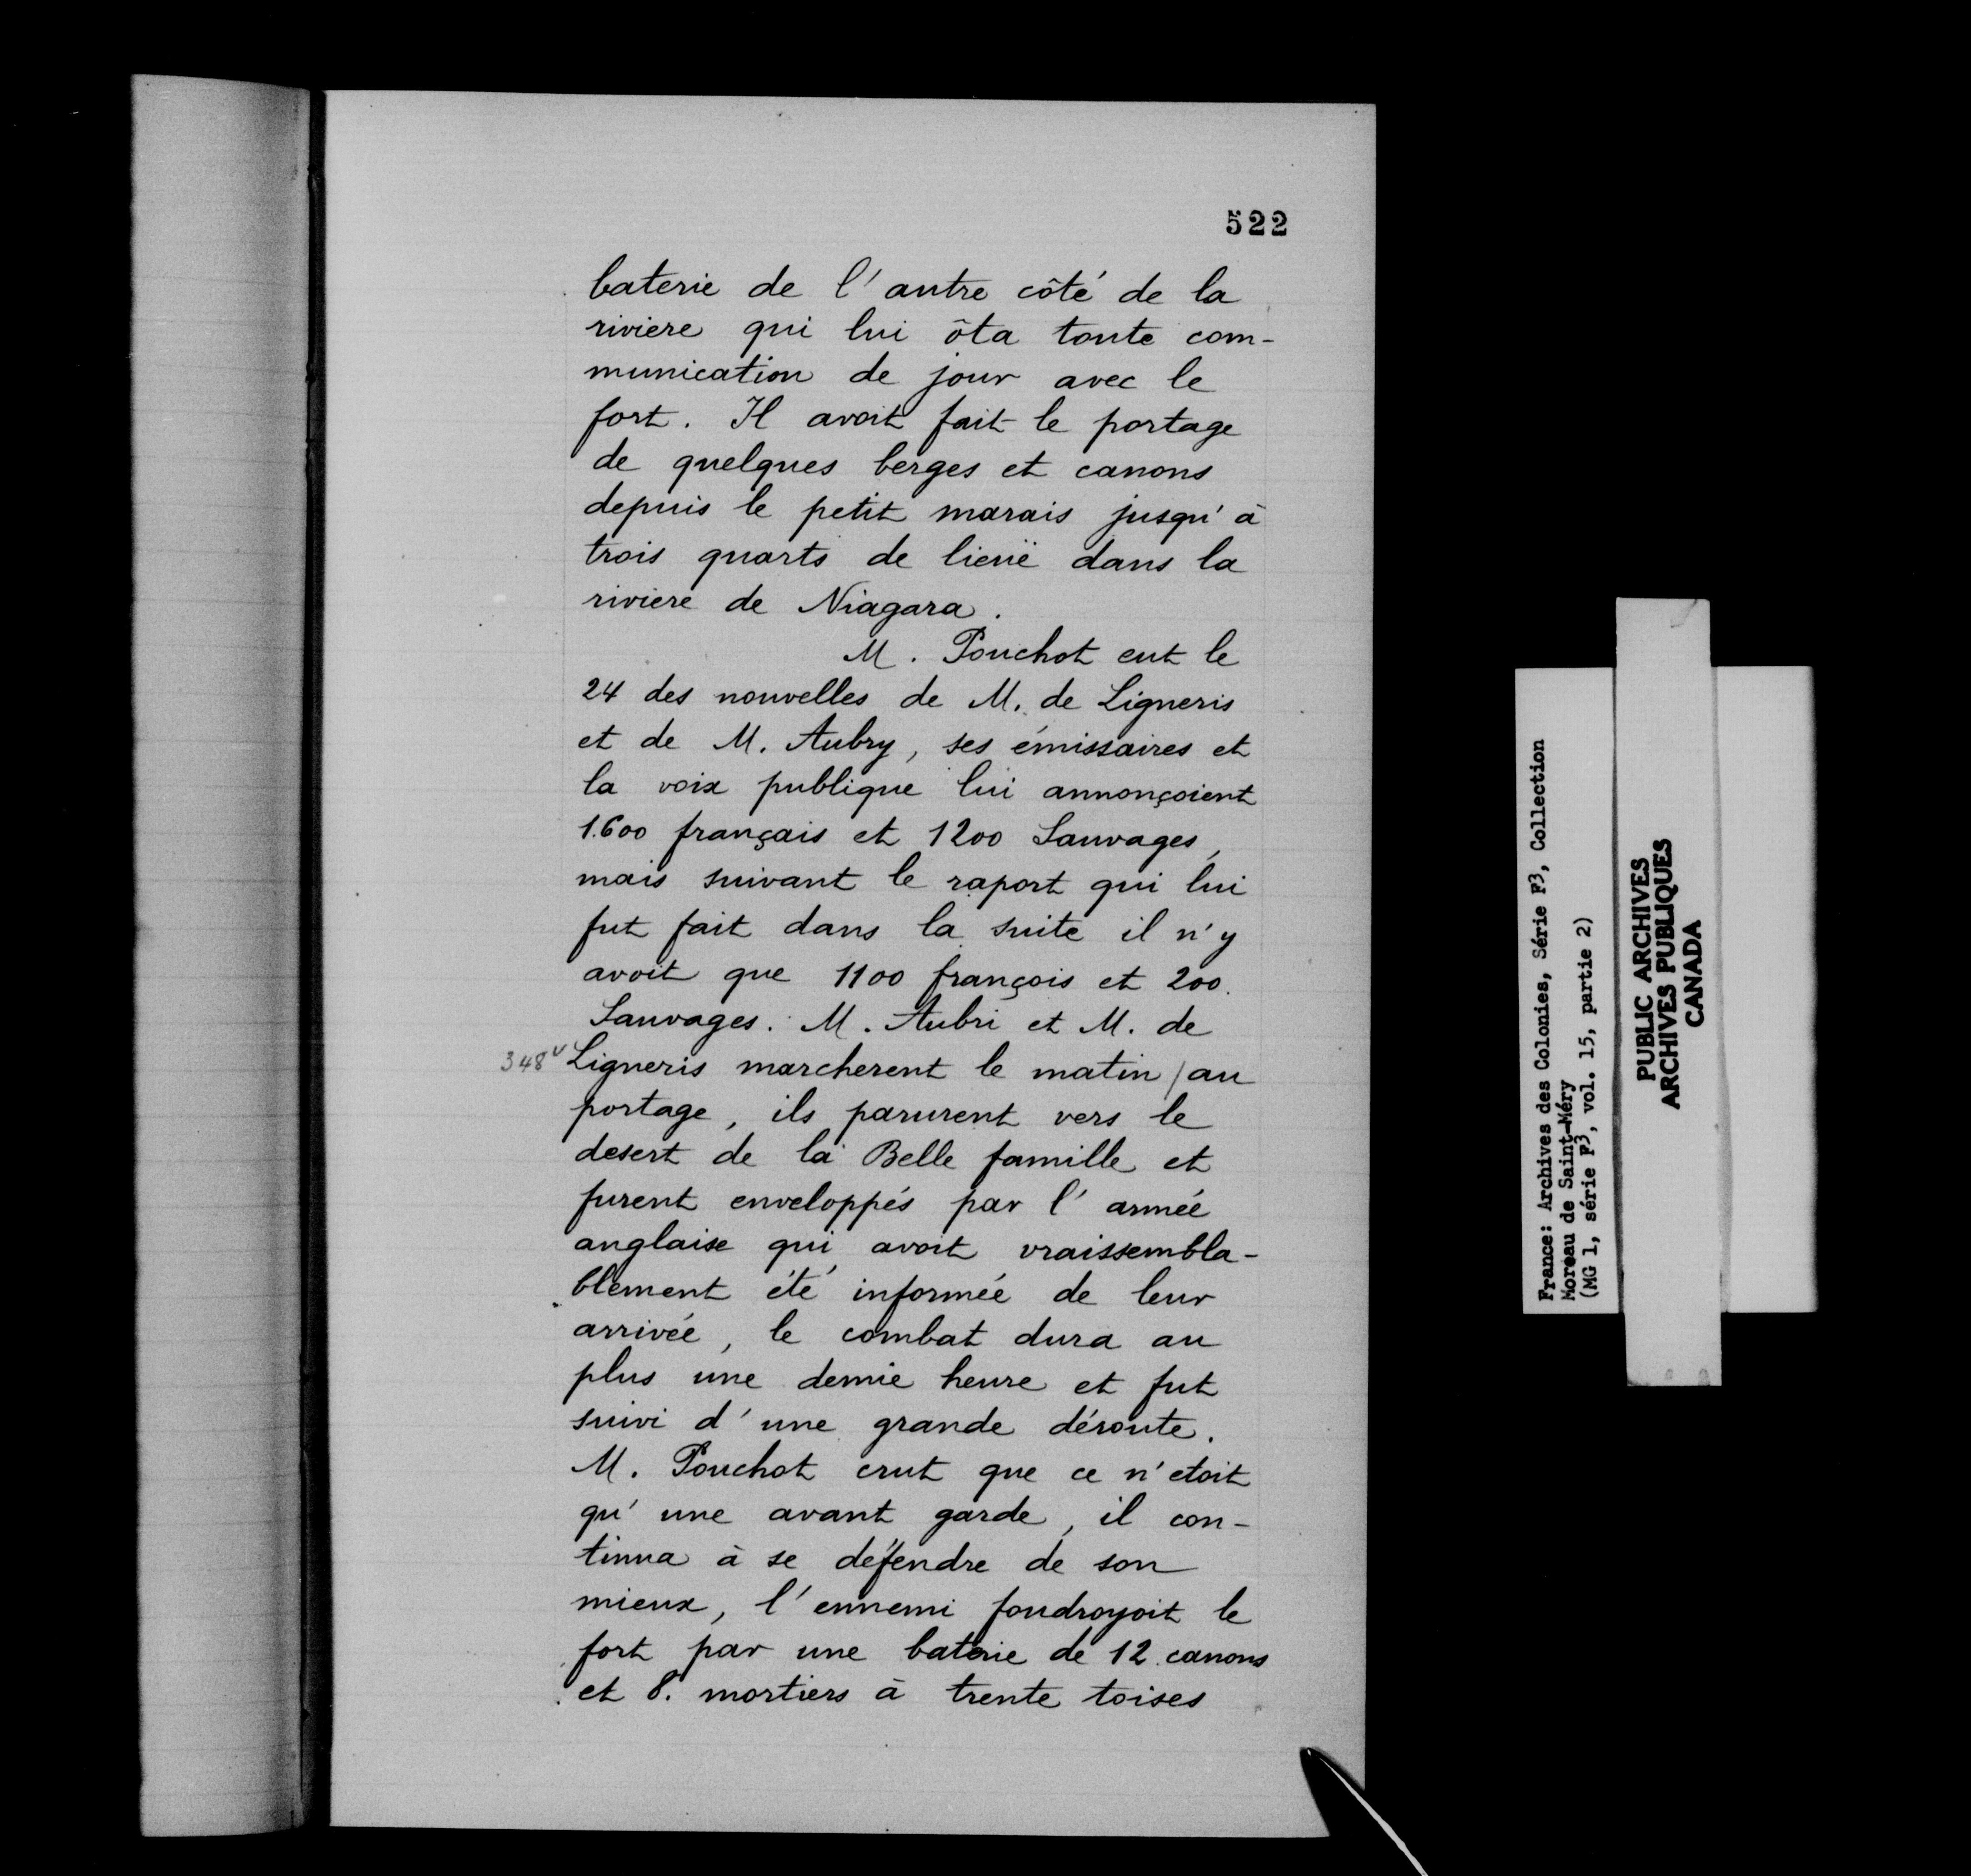 522
baterie de l'autre côté de la
riviere qui lui ôta toute com-
munication de jour avec le
fort. Il avoit fait le portage
de quelques berges et canons
depuis le petit marais jusqu'à
trois quarts de lieuë dans la
riviere de Niagara.
M. Pouchot eut le
24 des nouvelles de M. de Ligneris
et de M. Aubry, ses émissaires et
la voix publique lui annonçoient
1.600 français et 1200 Sauvages,
mais suivant le raport qui lui
fut fait dans la suite il n'y
avoit que 1100 françois et 200.
Sauvages. M. Aubri et M. de
348v Ligneris marcherent le matin / au
portage, ils parurent vers le
desert de la Belle famille et
furent enveloppés par l'armée
anglaise qui avoit vraissembla-
blement été informée de leur
arrivée, le combat dura au
plus une demie heure et fut
suivi d'une grande déroute.
M. Pouchot crut que ce n'etoit
qu'une avant garde, il con-
tinua à se défendre de son
mieux, l'ennemi foudroyoit le
fort par une baterie de 12 canons
et 8. mortiers à trente toises
France: Archives des Colonies, Série F3, Collection
Moreau de Saint-Méry
(MG 1, série F3, vol. 15, partie 2)
PUBLIC ARCHIVES
ARCHIVES PUBLIQUES
CANADA